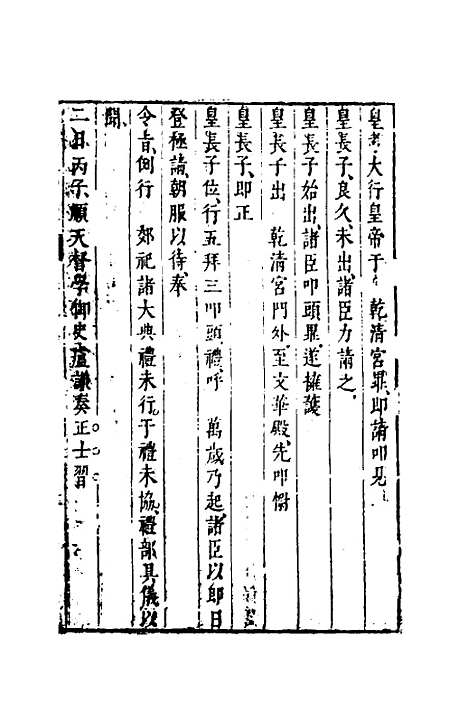 皇考大行皇帝于 乾清宮罪即請叩見
皇長子良久未出諸臣力請之
皇長子始出諸臣叩頭畢遂擁護
皇長子出 乾清宮門外至文華殿先叩慰
皇長子即正
皇長子位行五拜三叩頭禮呼 萬歲乃起諸臣以即日
登極請朝服以待奉
令旨倒行 郊祀諸大典禮未行于禮未協禮部具儀以
聞
二日丙子順天督學御史 奏正士習